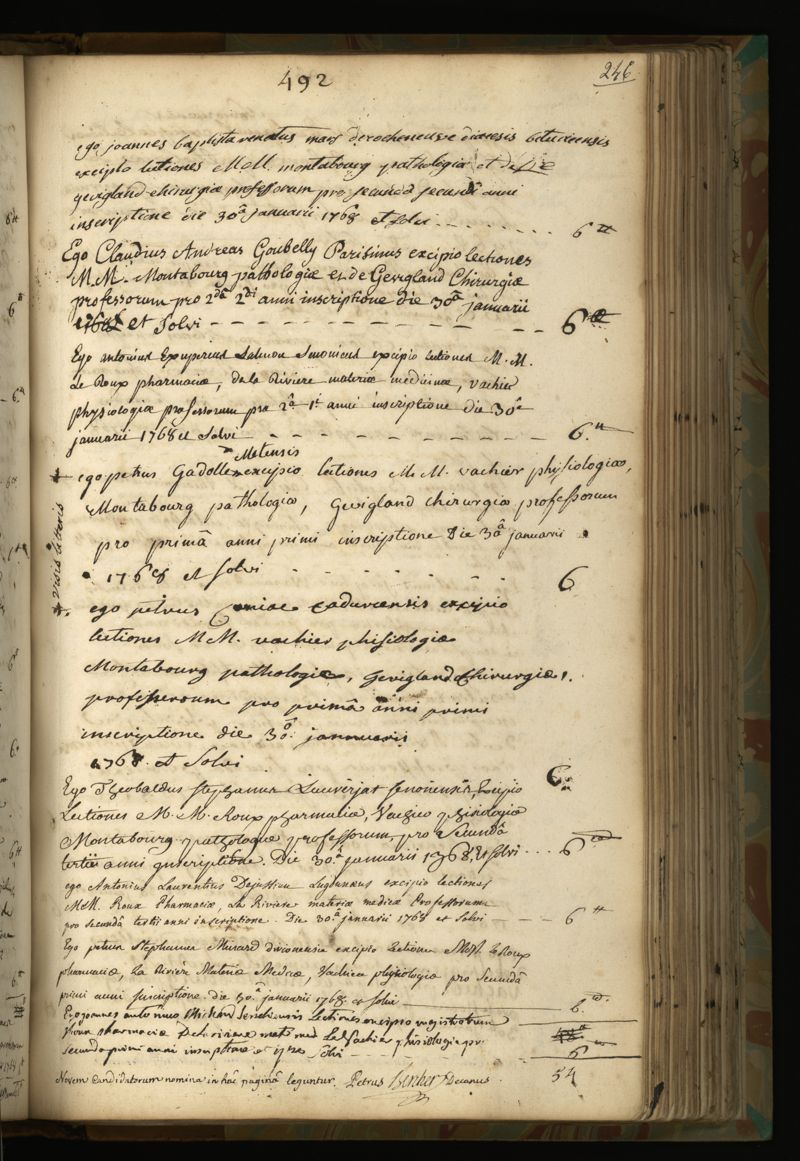 492
246
ego joannes baptista renatus mars derochencuse diœcesis bituricensis
excipio lectiones M M. montabourg pathologiæ et de
gevigland chirurgiæ professorum pro secunda secundi anni
inscriptione die 30â januarii 1768 et solvi - - - - - - - 6 tt
Ego Claudius Andreas Goubelly Parisinus excipio lectiones
M. M. Montabourg pathologiæ et de Gevigland Chirurgiæ
professorum pro 2dâ 2di anni inscriptione die 30â januarii
1768 et solvi - - - - - - - - - - - - 6 tt
Ego antonius Exuperius Salmon excipio lectiones M. M.
Le Roux pharmaciæ, de la Riviere materiæ medicinæ, vachier
physiologiæ professorum pro 2â 1i anni inscriptione die 30â
januarii 1768 et solvi - - - - - - - - - - 6. tt
Metensis
+ ego petrus Gadolle excipio lectiones M. M. vachier phisiologiæ,
Montabourg pathologiæ, Gevigland chirurgiæ professorum
pro primâ anni primi inscriptione die 30â januarii
1768 et solvi - - - - - - 6
visis litteris
+. ego petrus cadurcensis excipio
lectiones M M. vachier phisiologiæ
Montabourg pathologiæ, gevigland Chirurgiæ,
professorum pro primâ anni primi
inscriptione die 30â. januarii
1768. et solvi
6 tt
Ego Theobaldus stephanus Lauverjat senonensis, Excipio
Lectiones M. M. Roux pharmaciæ, Vachier physiologiæ
Montabourg pathologiæ professorum, pro secundâ
tertii anni inscriptione. Die 30.â januarii 1768, Et solvi . . . . 6
ego Antonius Laurentius Dejussieu Lugdunæus excipio lectiones
M M. Roux Pharmaciæ, la Riviere materiæ medicæ Professorum
pro secundâ tertii anni inscriptione. Die 30.â januarii 1768 et solvi - - - - 6 tt
Ego petrus Stephanus divionensis excipio Lectiones MM. Le Roux
pharmaciæ, La Riviere Materiæ Medicæ, Vachier physiologiæ pro secundâ
primi anni inscriptione. die 30.â januarii 1768. et solvi 6. tt
Ego joannes antonius Michel Lectiones excipio magistrorum
Roux pharmaciæ De la riviere mat med Vachier phisiologiæ pro
secunda primi anni inscriptione solvi - - - - - 6
Novem Candidatorum nomina in hâc paginâ leguntur. Petrus Bercher Decanus. 54